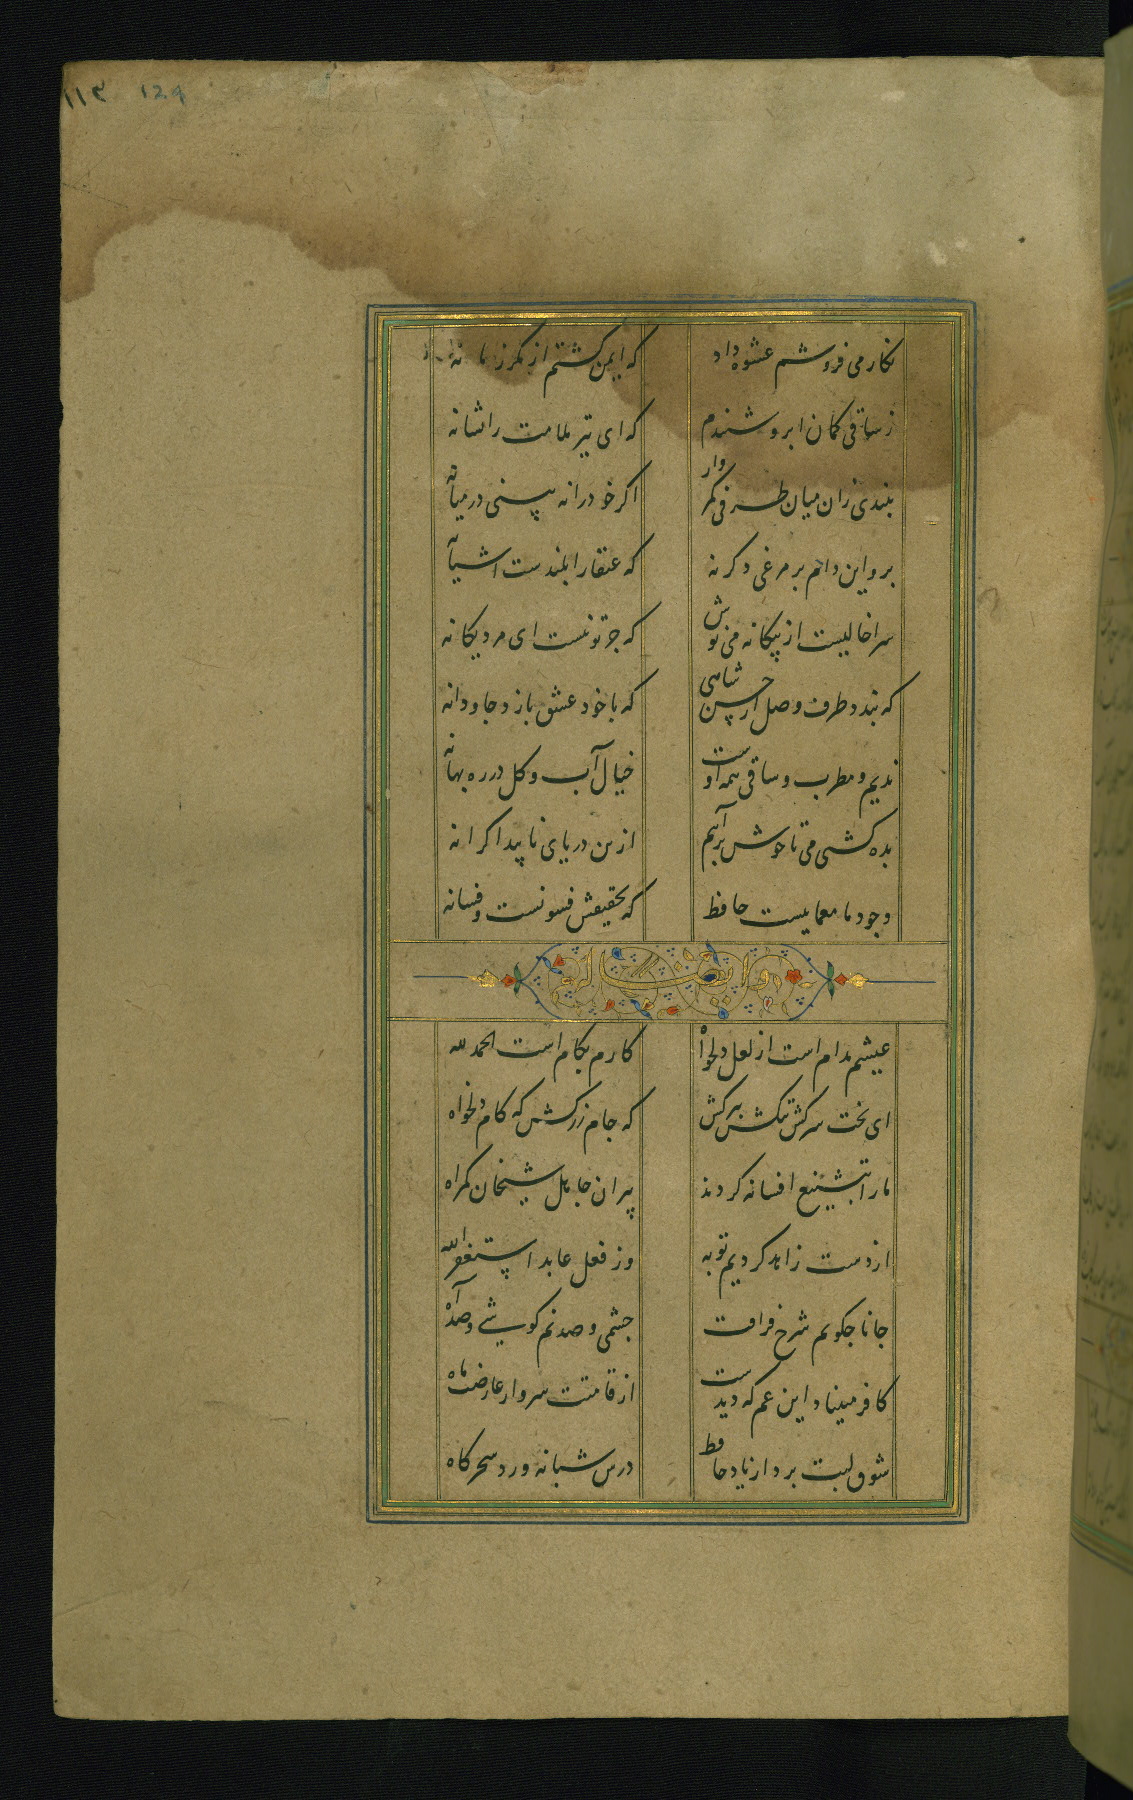 ۱۱۳ 129
نکار می فروشم عشوه داد که ایمن کشتم از مکر زمانه
ز ساقی کمان ابرو شنیدم که ای تیر ملامت را نشانه
نبندی زان میان طرفی کمروار اکر خود را نه بینی در میانه
برو این دام بر مرغی دکر نه که عنقا را بلندست آشیانه
سرا خالیست از بیکانه می نوش که جز تو نیست ای مرد یکانه
که بندد طرف وصل از حسن شاهی که با خود عشق بازد جاودانه
ندیم و مطرب و ساقی همه اوست خیال آب و کل در ره بهانه
بده کشتی می تا خوش برآیم ازین دریای ناپیدا کرانه
وجود ما معماییست حافظ که تحقیقش فسونست و فسانه
وله ایضا
عیشم مدام است از لعل دلخواه کارم بکام است الحمدلله
ای بخت سرکش تنکش ببر کش که جام زر کش که کام دلخواه
ما را بتشنیع افسانه کردند پیران جاهل شیخان کمراه
از دست زاهد کردیم توبه وز فعل عابد استغفرالله
جانا چکویم شرح فراقت چشمی و صد نم کویی و صد آه
کافر مبیناد این غم که دیدست از قامتت سرو از عارضت ماه
شوق لبت برد از یاد حافظ درس شبانه ورد سحرکاه